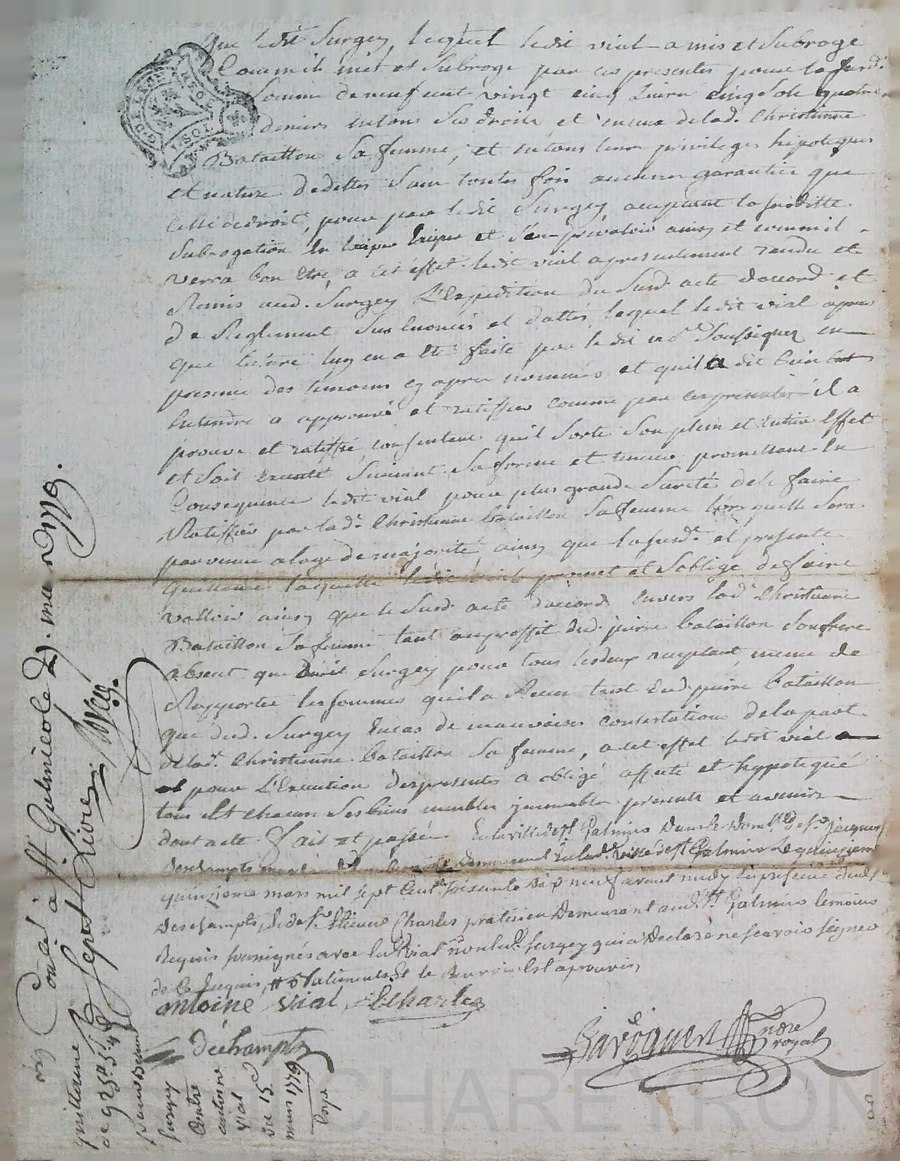 que ledit Surgey, lequel ledit vial a mis et Subrogé
Comme il met et Subroge par ces presentes pour la susd.
Somme de neuf cent vingt cinq livres cinq sols quatre
deniers en tous ses droits et meme de lad. Christinne
Bataillon Sa femme, et en tous leurs privileges hipoteques
et nature de dettes Sans toutes fois aucune garantie que
celle de droit, pour par ledit Surgey acceptant la susditte
Subrogation en et s'en prevaloir ainsy et comme il
verra bon etre, a cet effet ledit vial a presentement rendu et
Remis aud. Surgey L'Expedition du Susd. acte d'accord et
de Reglement Sus enoncés et dattés lequel ledit vial apres
que lecture luy en a eté faite par ledit no.re Soussigné en
presence des temoins cy apres nommés et quil a dit bien
Entendre a approuvé et ratiffié comme par ces presentes il a
prouve et ratiffié consentant quil Sorte Son plein et Entier Effet
et Soit executé Suivant Sa forme et teneur promettant En
Consequence ledit vial pour plus grande Sureté de le faire
Ratiffier par lad. Christinne bataillon Sa femme lorsquelle Sera
parvenue a l'age de majorité ainsy que la susd. et presente
quittance laquelle ledit vial promet et S'oblige de faire
valloir ainsy que le Susd. acte d'accord Envers lad. Christinne
Bataillon Sa femme tant au proffit dud. pierre bataillon Son frere
absent que dudit Surgey pour tous les deux acceptant, meme de
Rapporter les sommes quil a Receu tant dud. pierre bataillon
que dud. Surgey En cas de mauvaises contestations de la part
de lad. Christinne bataillon Sa femme, a cet effet ledit vial a
pour L'Execution des presentes a obligé affecté et hypotequé
tous Et chacun Ses biens meubles immeubles presents et avenir
dont acte Fait et passé En la ville de St Galmier Dans le Domile de Sr jacques
Deschamps
quinzieme mars mil sept Cents Soixante Dix neuf avant midy En presence dud. Sr
Deschamps, & de Sr Etienne Charles praticien Demeurant aud. St Galmier temoins
Requis soussignés avec led. Vial non led. Surgey qui a Declaré ne scavoir Signer
de ce Enquis,
antoine vial E Charles
déchamps
Nore royal
Conlé à St Galmier le 29. mars 1779.
Sept Livres
quittance
de 925lt 5s 4d
pour
surgey
Contre
antoine
vial
du 15
mars 1779
PATRICK CHAREYRON